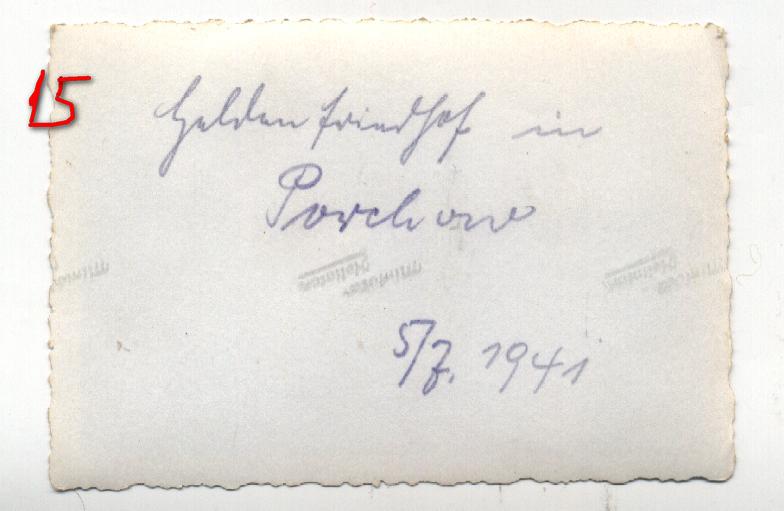 15
Heldenfriedhof in
Porchow
5/7. 1941